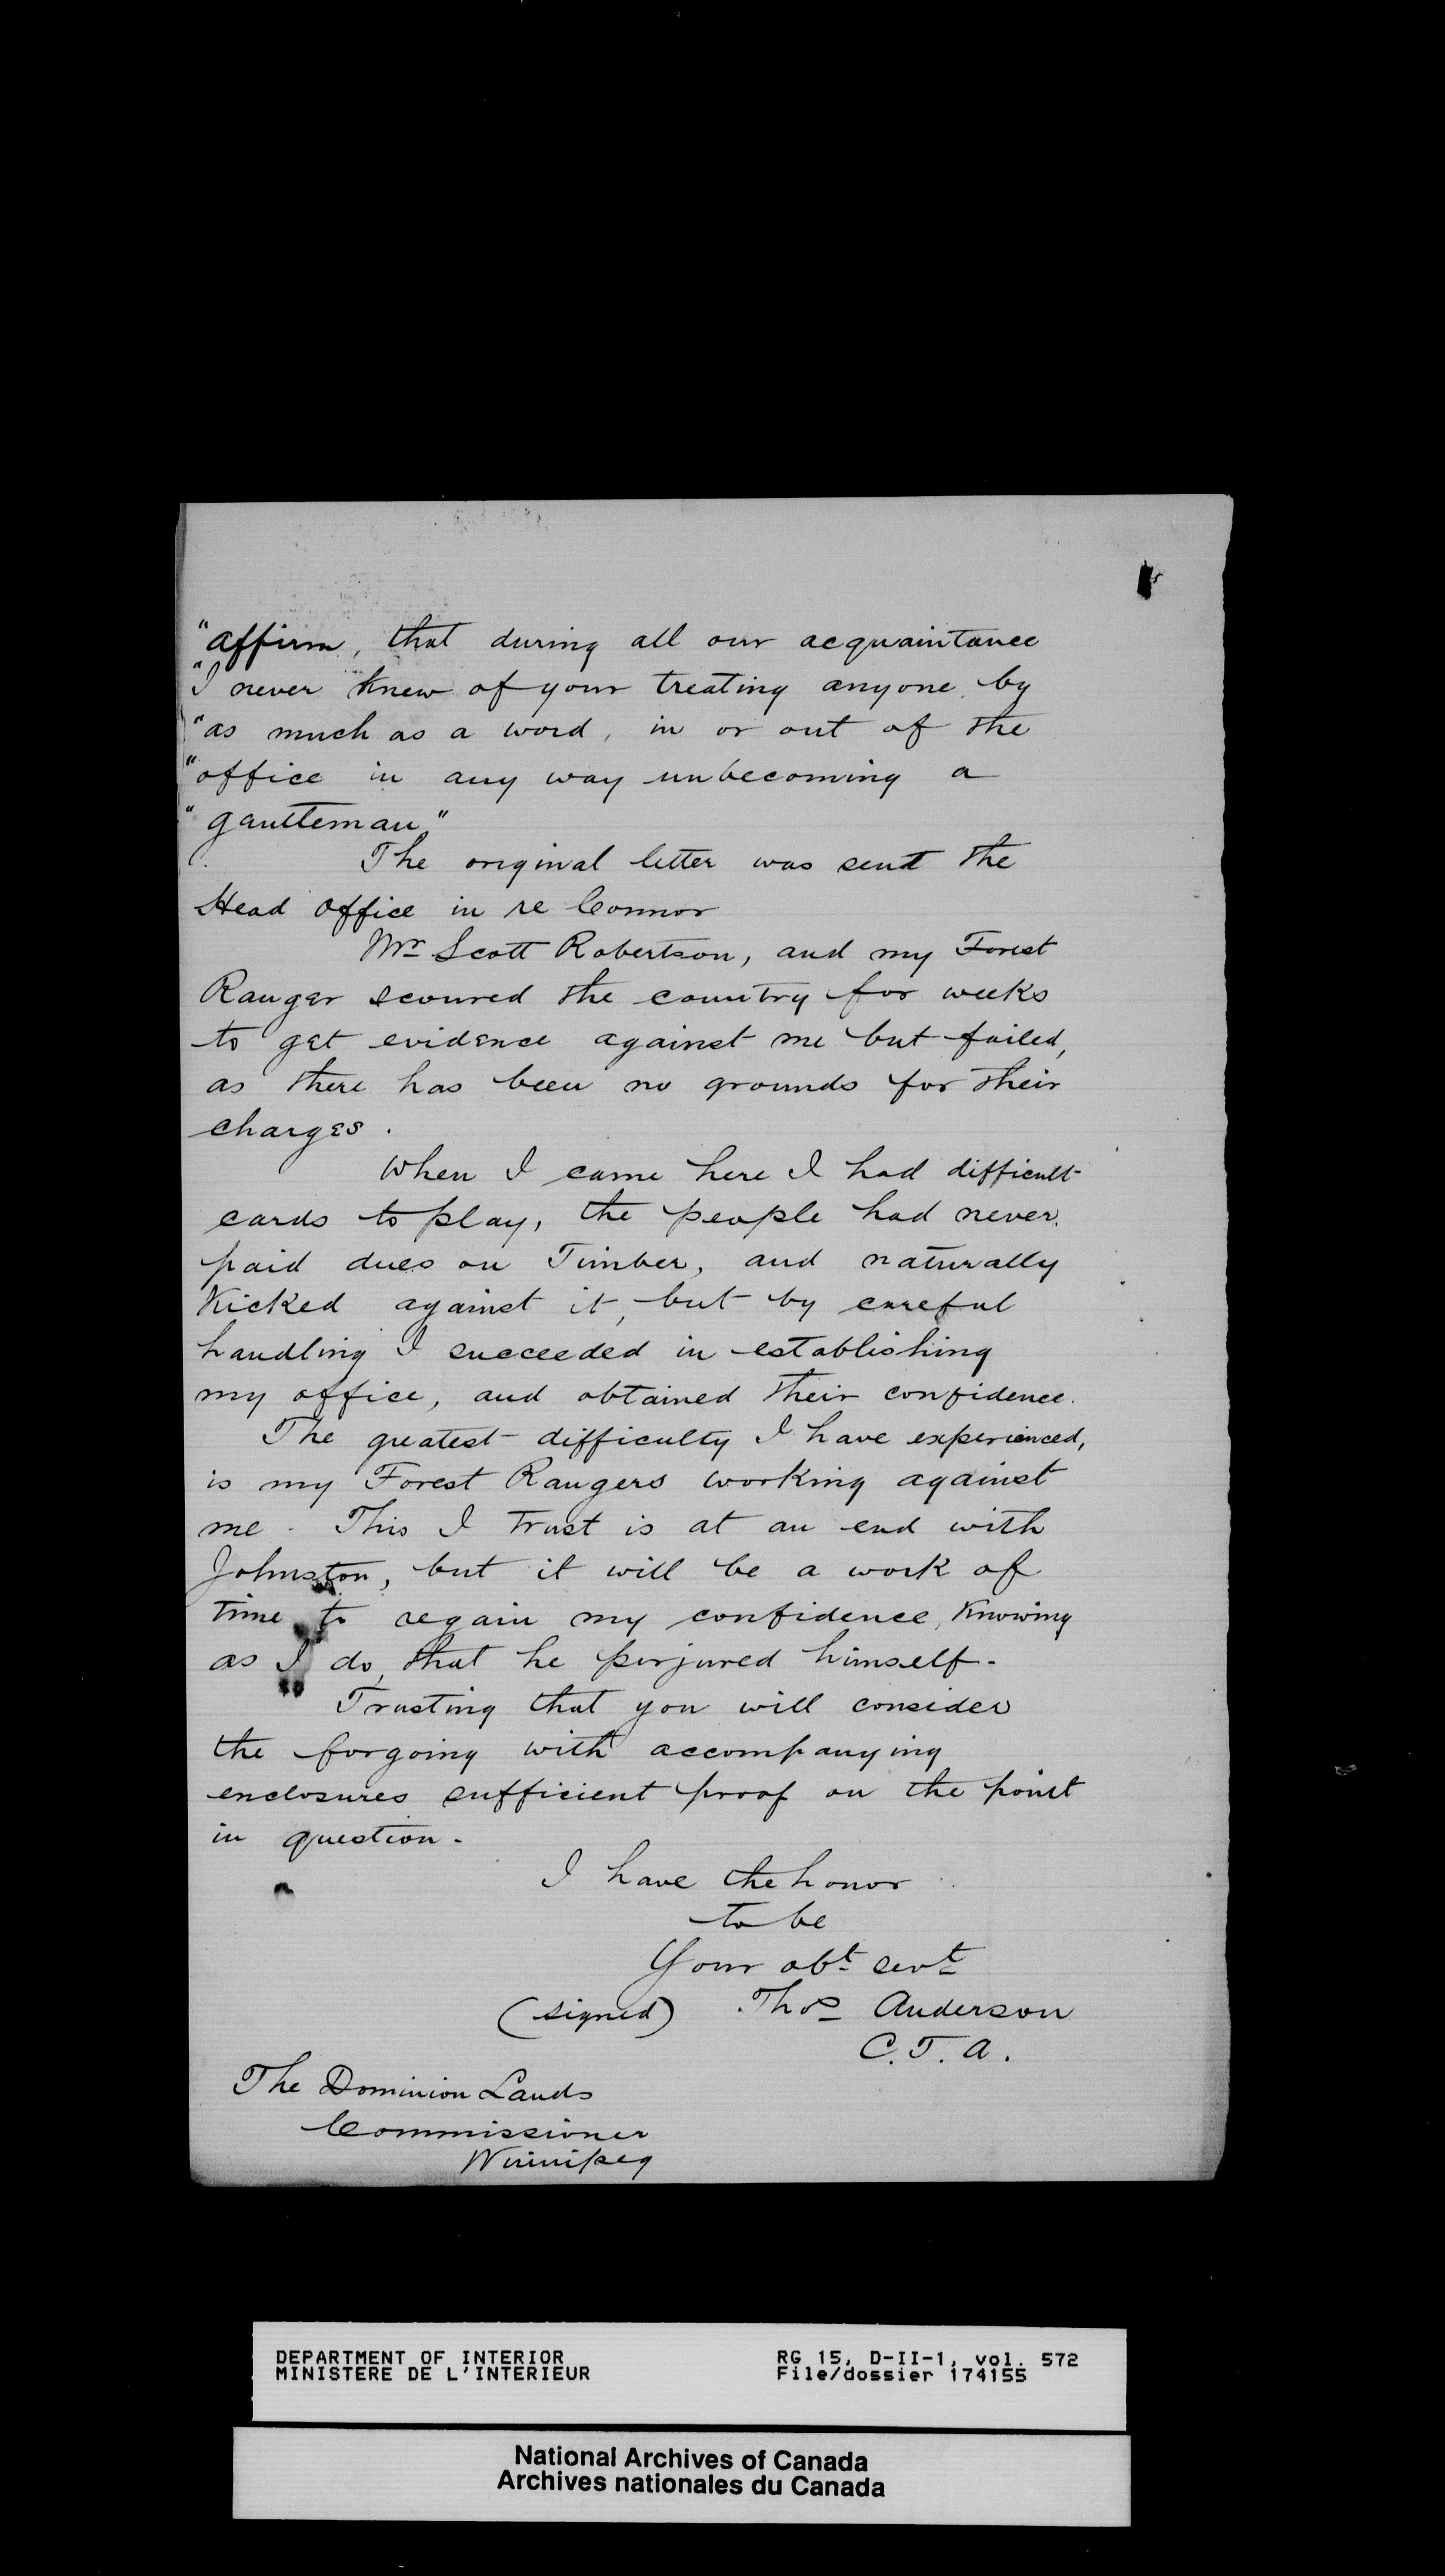 "affirm, that during all our acquaintance
"I never knew of your treating anyone by
"as much as a word, in or out of the
"office in any way unbecoming a
"gantteman"
The original letter was sent the
Head Office in re Connor
Mr Scott Robertson, and my Forest
Ranger scoured the country for weeks
to get evidence against me but failed,
as there has been no grounds for their
charges.
When I came here I had difficult
cards to play, the people had never
paid dues on Timber, and naturally
Kicked against it, but by careful
handling I succeeded in establishing
my office, and obtained their confidence.
The greatest difficulty I have experienced,
is my Forest Rangers working against
me. This I trust is at an end with
Johnston, but it will be a work of
time to regain my confidence, Knowing
as I do, that he perjured himself-
Trusting that you will consider
the forgoing with accompanying
enclosures sufficient proof on the point
in question-
I have the honor
to be
Your obt servt
(signed) Thos Anderson
C.T.A.
The Dominion Lands
Commissioner
Winnipeg
DEPARTMENT OF INTERIOR RG 15, D-II-1, vol. 572
MINISTERE DE L'INTERIEUR File/dossier 174155
National Archives of Canada
Archives nationales du Canada